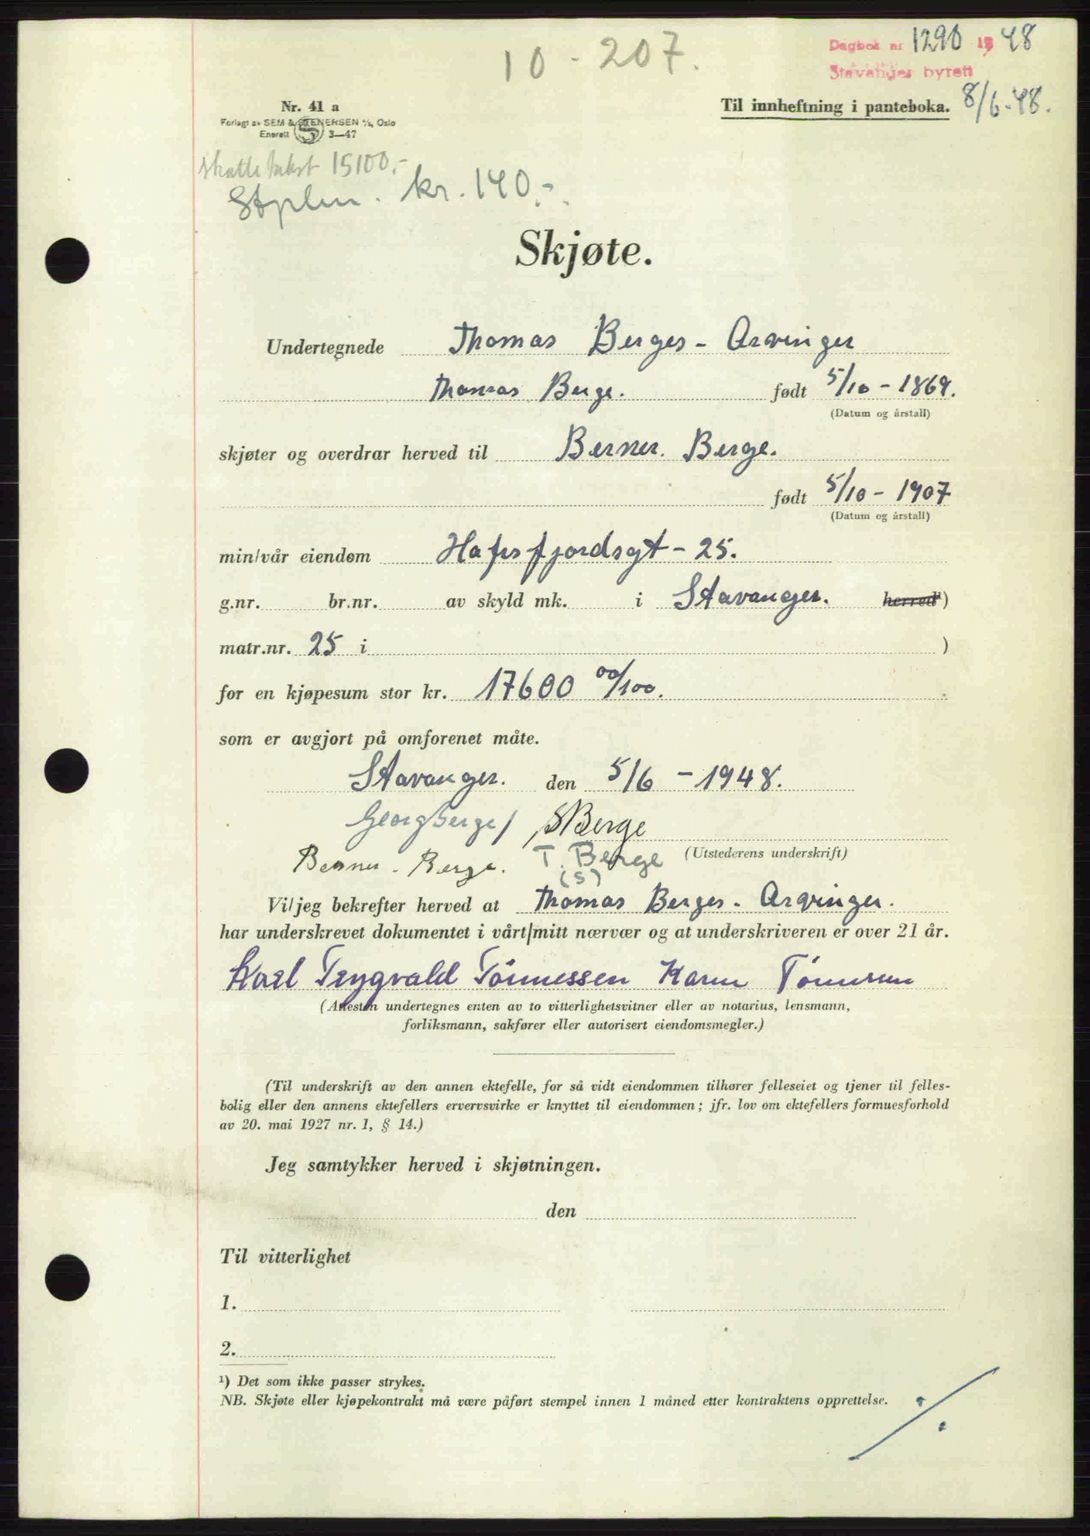 10 - 207.
Dagbok nr 1290 1948
Stavanger byrett
8/6-48.
Nr. 41 a
Forlagt av SEM & STENERSEN A/S, Oslo
Enerett S 3—47
Til innheftning i panteboka.
skattetakst 15100.-
kr. 140.-
Skjøte.
Undertegnede Thomas Berges - Arvinger
Thomas Berge. født 5/10 - 1869.
(Datum og årstall)
skjøter og overdrar herved til Berner. Berge.
født 5/10 - 1907
(Datum og årstall)
min/vår eiendom Hafrsfjordsgt - 25.
g.nr. br.nr. av skyld mk. i Stavanger. herred¹)
matr.nr. 25 i )
for en kjøpesum stor kr. 17600 00/100.
som er avgjort på omforenet måte.
Stavanger. den 5/6 - 1948.
Georg Berge / S Berge
Berner. Berge. T. Berge (Utstederens underskrift)
(S)
Vi/jeg bekrefter herved at Thomas Berges - Arvinger.
har underskrevet dokumentet i vårt/mitt nærvær og at underskriveren er over 21 år.
Karl Trygvald Tönnessen Karen Tönnessen
(Attesten undertegnes enten av to vitterlighetsvitner eller av notarius, lensmann,
forliksmann, sakfører eller autorisert eiendomsmegler.)
(Til underskrift av den annen ektefelle, for så vidt eiendommen tilhører felleseiet og tjener til felles-
bolig eller den annens ektefellers ervervsvirke er knyttet til eiendommen; jfr. lov om ektefellers formuesforhold
av 20. mai 1927 nr. 1, § 14.)
Jeg samtykker herved i skjøtningen.
den
Til vitterlighet
1.
2.
¹) Det som ikke passer strykes.
NB. Skjøte eller kjøpekontrakt må være påført stempel innen 1 måned etter kontraktens opprettelse.